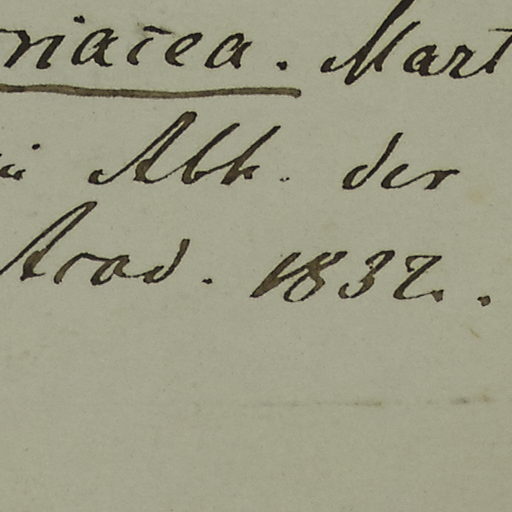 riacea. Mart
Abh. der
Acad. 1832.